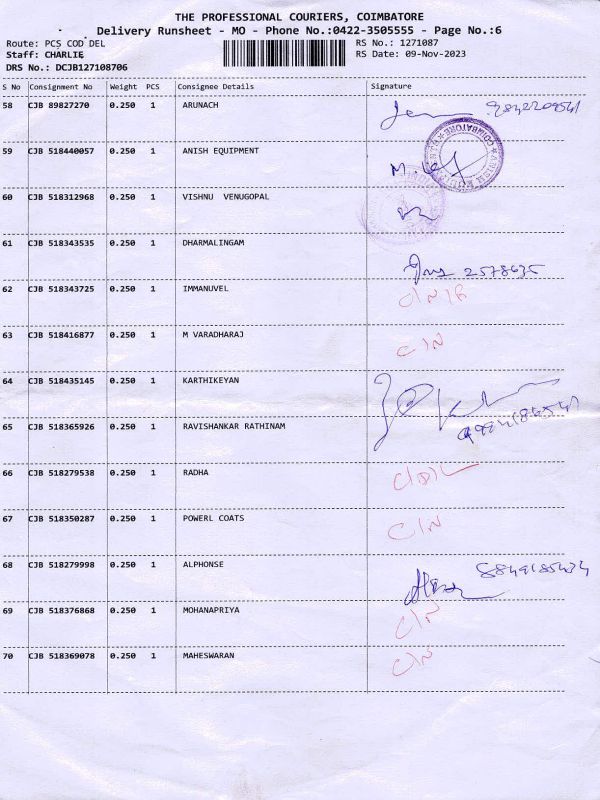 THE PROFESSIONAL COURIERS, COIMBATORE
Delivery Runsheet - MO - Phone No.:0422-3505555 - Page No.:6
Route: PCS COD DEL RS No.: 1271087
Staff: CHARLIE RS Date: 09-Nov-2023
DRS No.: DCJB127108706
S No Consignment No Weight PCS Consignee Details Signature
58 CJB 89827270 0.250 1 ARUNACH
59 CJB 518440057 0.250 1 ANISH EQUIPMENT
60 CJB 518312968 0.250 1 VISHNU VENUGOPAL
61 CJB 518343535 0.250 1 DHARMALINGAM 2578635
62 CJB 518343725 0.250 1 IMMANUVEL
63 CJB 518416877 0.250 1 M VARADHARAJ C/N
64 CJB 518435145 0.250 1 KARTHIKEYAN
65 CJB 518365926 0.250 1 RAVISHANKAR RATHINAM
66 CJB 518279538 0.250 1 RADHA
67 CJB 518350287 0.250 1 POWERL COATS C/N
68 CJB 518279998 0.250 1 ALPHONSE
69 CJB 518376868 0.250 1 MOHANAPRIYA C/N
70 CJB 518369078 0.250 1 MAHESWARAN C/N